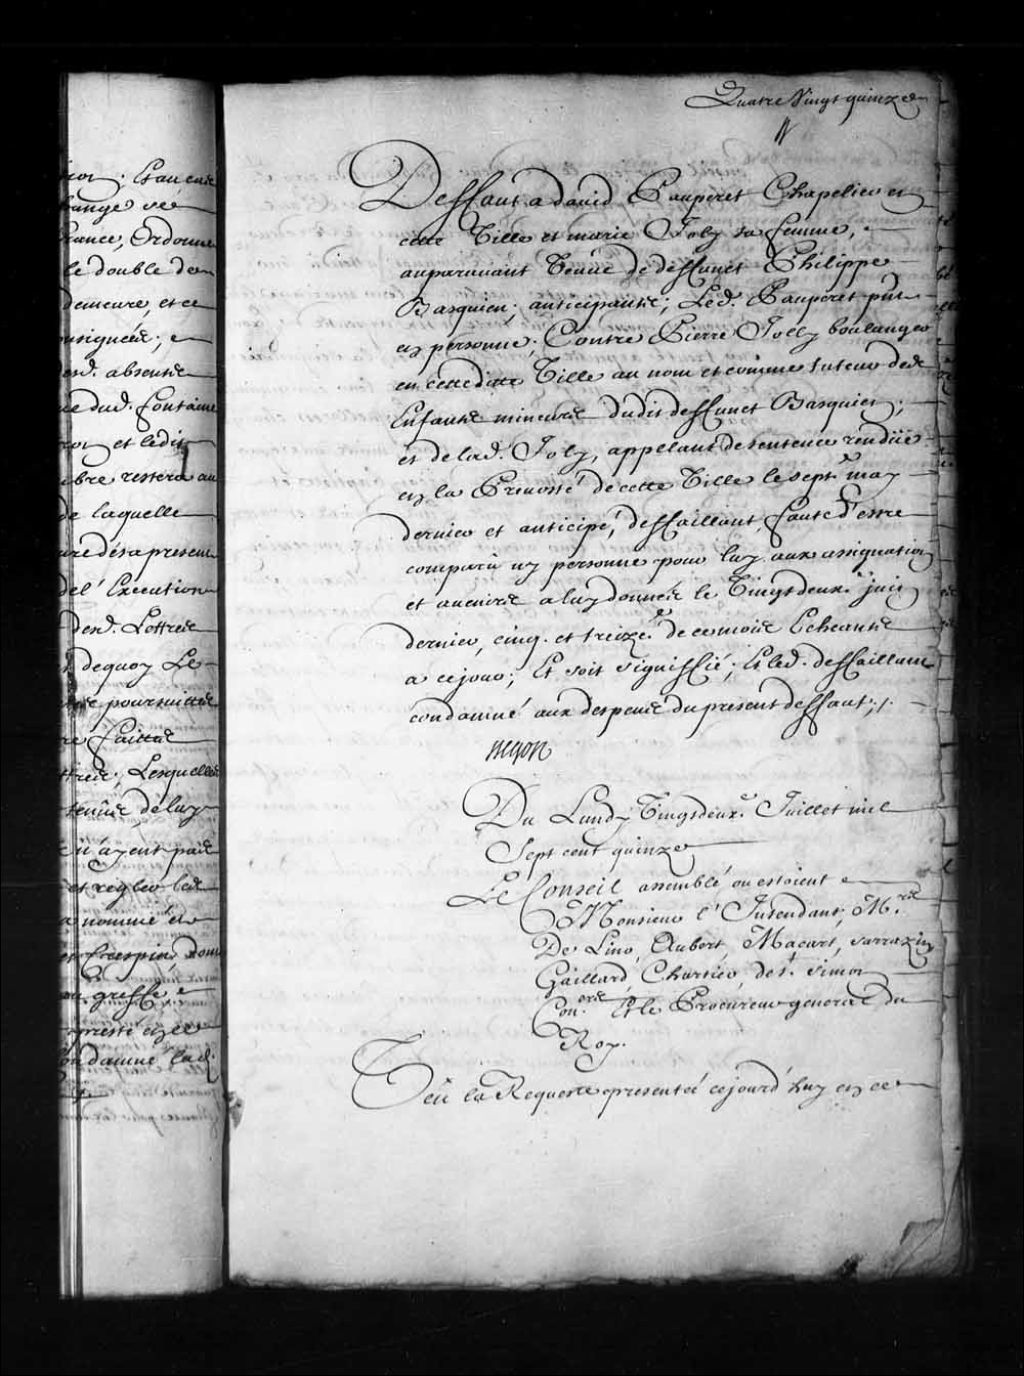 Quatre Vingt quinze
Deffaut a david Pauperet Chapelier en
cette Ville et marie Joly sa femme,
auparavant Veuve de deffunct Philippe
Basquien; anticipante; Led. Pauperet pnt
en personne; Contre Pierre Jolly boulanger
en cettedite Ville au nom et comme tuteur des
Enfants mineurs dudit deffunct Basquien;
et de lad. Joly, appelant de sentence rendüe
en la Prevosté de cette Ville le sept.e may
dernier et anticipé, deffaillant faute d'estre
comparu ny personne pour luy aux assignations
et avenirs a luy donnés le Vingtdeux.e juin
dernier, cinq. et treize.e de ce mois Echeants
a ce jour; Et soit signiffié; Et led. deffaillant
condamné aux despens du present deffaut;/.
Begon
Du Lundy Vingtdeux.e Juillet mil
Sept cent quinze
Le Conseil assemblé ou estoient
Monsieur l'Intendant, M.rs
De Lino, Aubert, Macart, Sarrazin
Gaillard, Chartier, de St. Simon
Con.ers Et le Procureur general du
Roy.
Veu la Requeste presentée cejourd'huy en ce
rance, Ordonne
le double de
demeure, et ce
absents
et ledit
restera au
de laquelle
del'Execution
desd. Lettres
dequoy Le
poursuittes
faittes
Lesquelles
de luy
n'ayent pas
et regler les
a nommé
greffe
condamné lad.